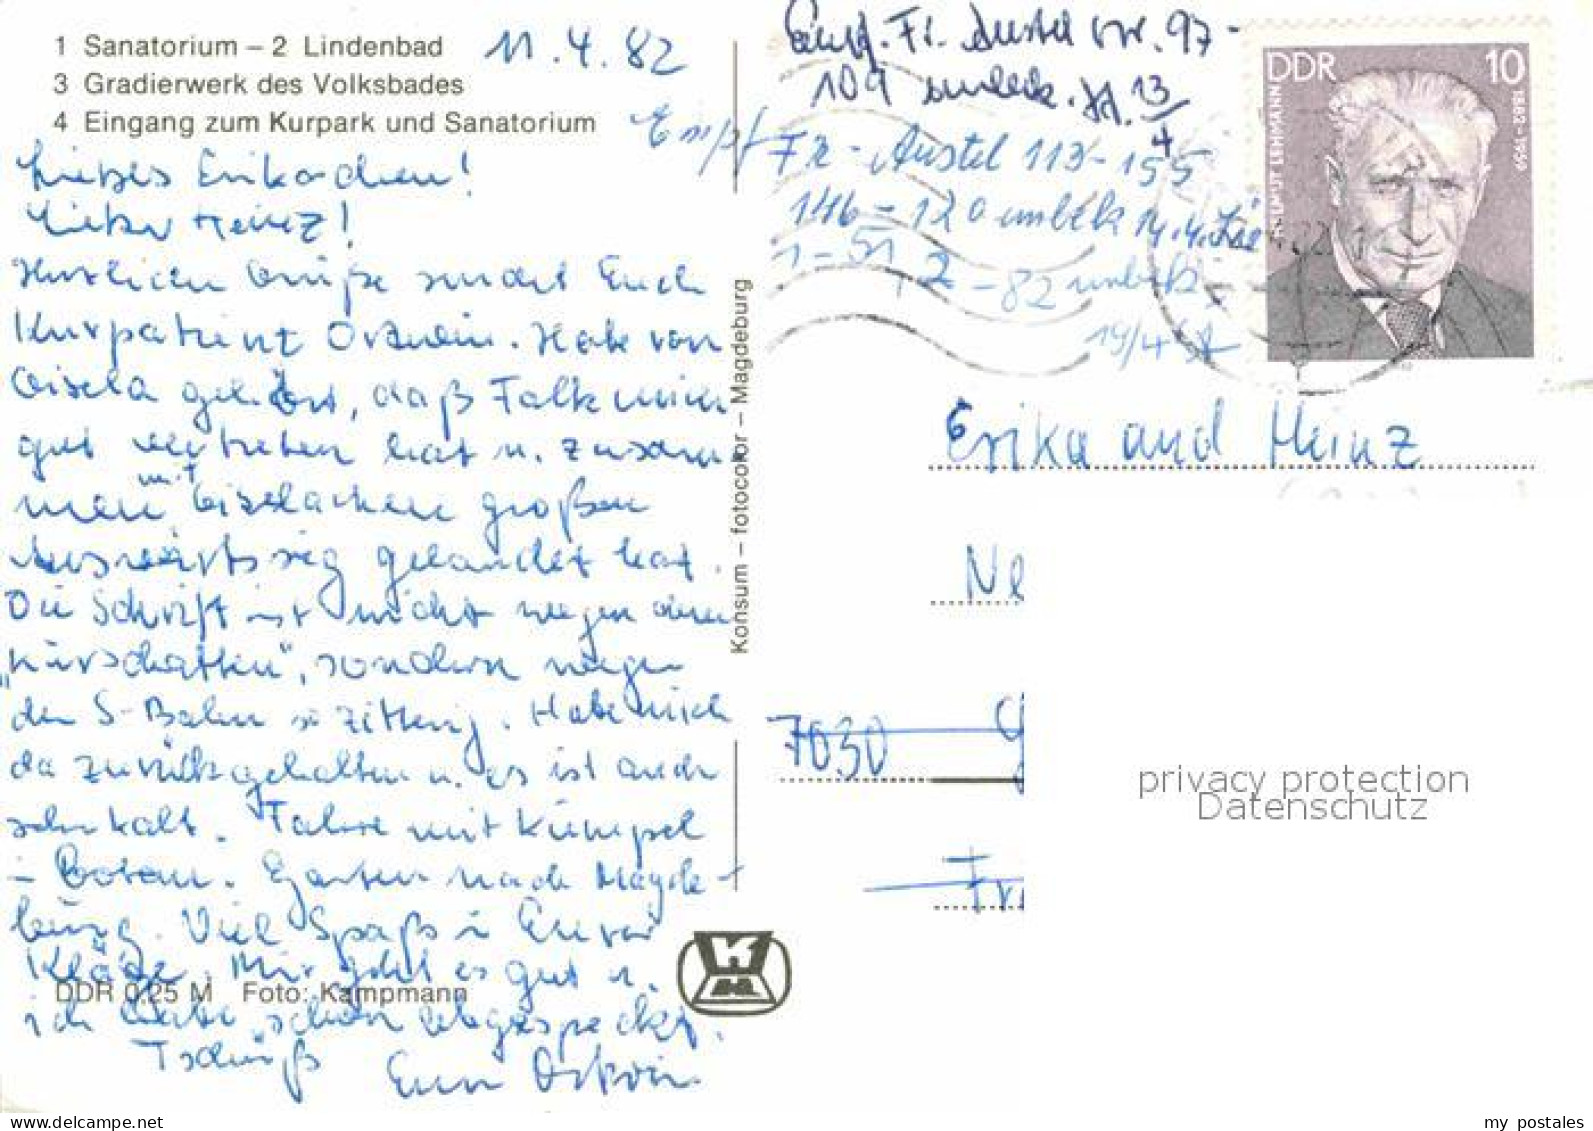 1 Sanatorium – 2 Lindenbad
3 Gradierwerk des Volksbades
4 Eingang zum Kurpark und Sanatorium
11.4.82
Liebes Erikachen!
Lieber Heinz!
Herzliche Grüße sendet Euch
Kurpatient Ortwin. Habe von
Gisela gehört, daß Falk mich
gut vertreten hat u. zusam
men mit Giselachen großen
Auswärtssieg gelandet hat.
Die Schrift ist nicht wegen dem
„Kurschatten", sondern wegen
der S-Bahn so zittrig. Habe mich
da zurückgehalten u. es ist auch
sehr kalt. Fahre mit Kumpel
Botan. Garten nach Magde-
burg. Viel Spaß in Eurer
Kläge. Mir geht es gut u.
ich habe schon abgespeckt.
Tschüß Euer Ortwin
DDR 0,25 M Foto: Kampmann
Konsum – fotocolor – Magdeburg
Empf. Fr. Austel 97-
109 unbek. 13/4
Empf Fr. Austel 113-155
146-120 unbek 14.4.
1-51, 2-82 unbek.
19/4
DDR 10
HELMUT LEHMANN 1882-1959
Erika und Heinz
Ne
7030
Fr
privacy protection
Datenschutz
my postales